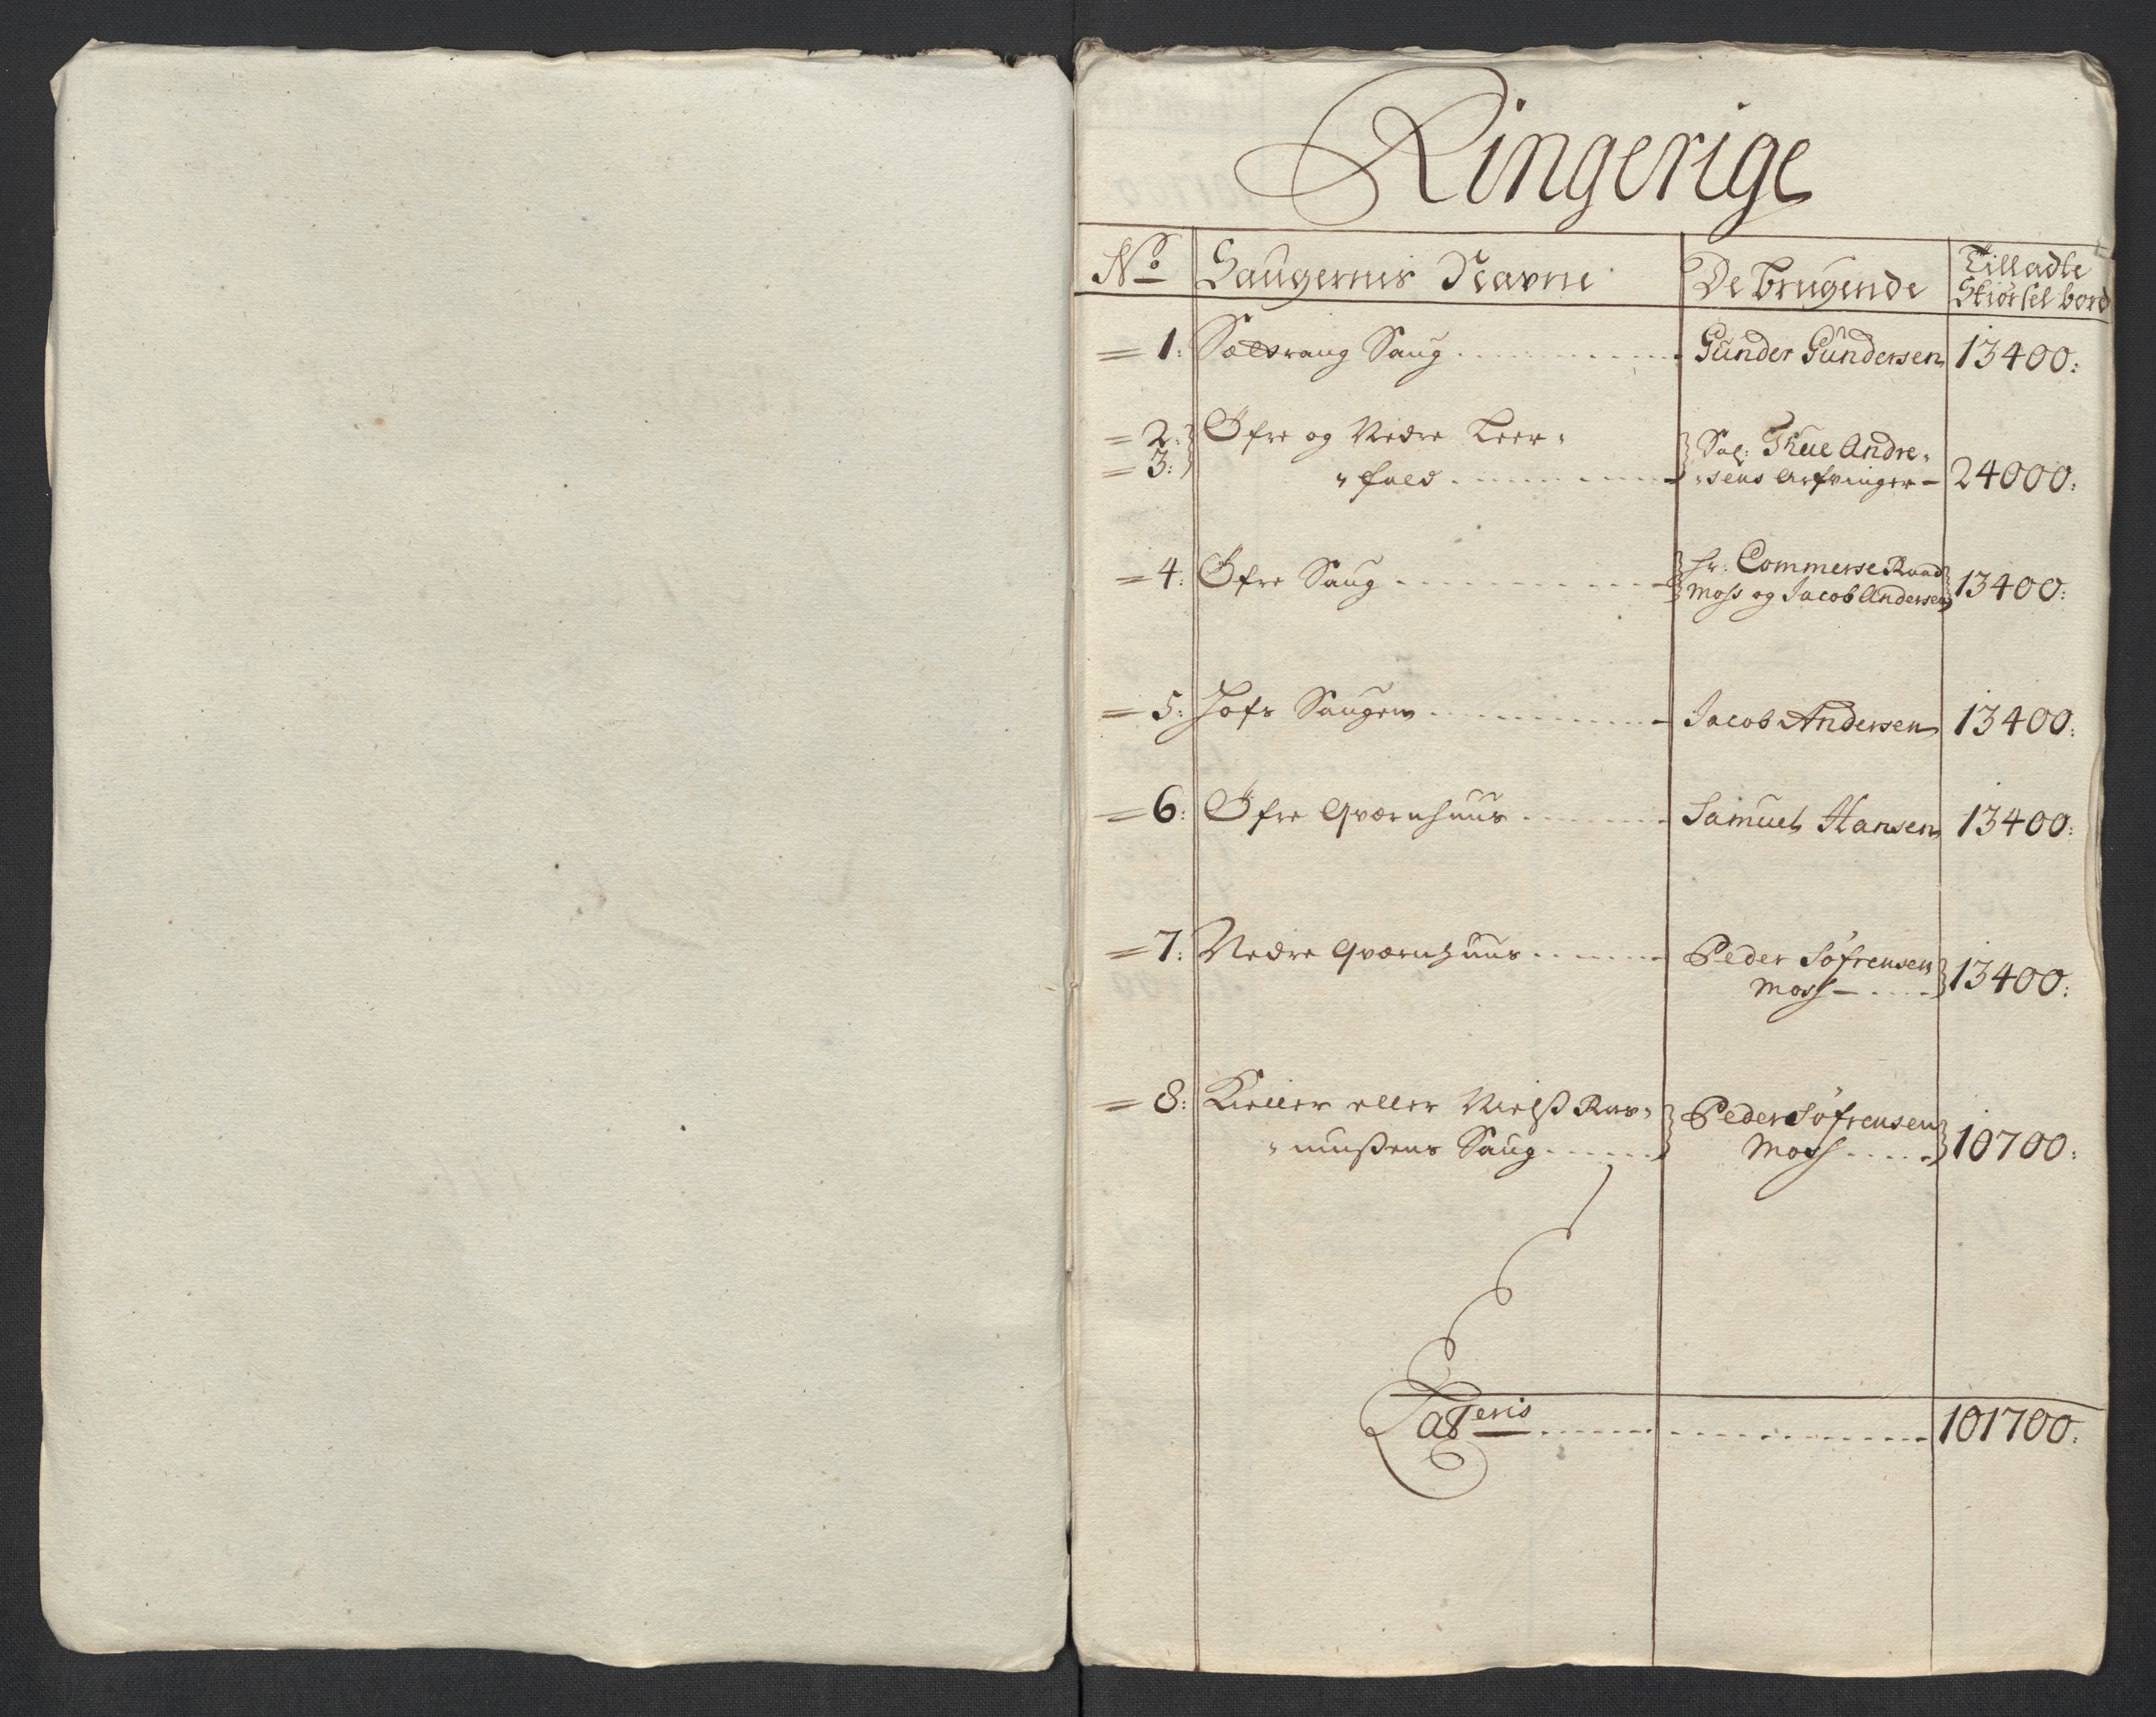 Ringerige
No Saugernis Navne De brugende Tilladte
Skiørsel bord
1: Saug Gunder Gundersen 13400:
2: Øfre og Nedre Leer-
3: fald Sal: Thue Andre-
sens Arfvinger 24000:
4: Øfre Saug Hr: Commerse Raad
Moss og Jacob Andersen 13400:
5: Hofs Saugen Jacob Andersen 13400:
6: Øfre Qværnhuus Samuel Hansen 13400:
7: Nedre Qværnhuus Peder Søfrensen
Moss 13400:
8: eller Nielß Ras-
mußens Saug Peder Søfrensen
Moss 10700:
Lateris 101700: